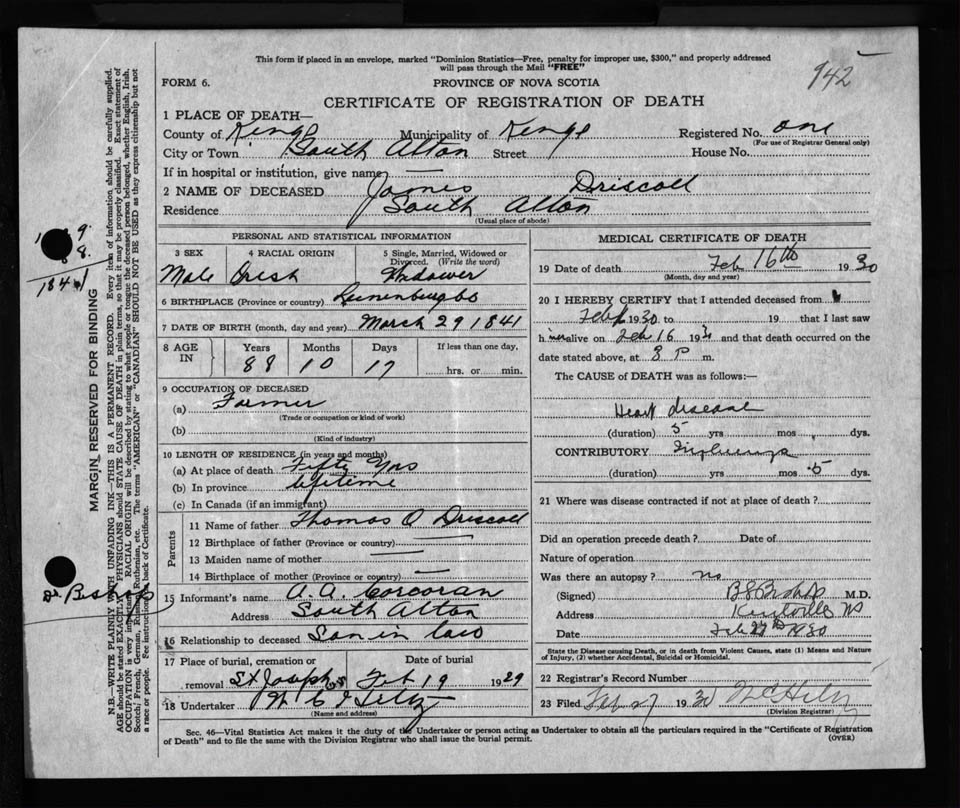 942
This form if placed in an envelope, marked "Dominion Statistics—Free, penalty for improper use, $300," and properly addressed
will pass through the Mail "FREE"
FORM 6.
PROVINCE OF NOVA SCOTIA
CERTIFICATE OF REGISTRATION OF DEATH
1 PLACE OF DEATH—
County of Kings Municipality of Kings Registered No. one
(For use of Registrar General only)
City or Town South Alton Street House No.
If in hospital or institution, give name —
2 NAME OF DECEASED James Driscoll
Residence South Alton
(Usual place of abode)
PERSONAL AND STATISTICAL INFORMATION
3 SEX 4 RACIAL ORIGIN 5 Single, Married, Widowed or
Divorced. (Write the word)
Male Irish Widower
6 BIRTHPLACE (Province or country) Lunenburg Co
7 DATE OF BIRTH (month, day and year) March 29 1841
8 AGE IN Years Months Days If less than one day,
88 10 17 hrs. or min.
9 OCCUPATION OF DECEASED
(a) Farmer
(Trade or occupation or kind of work)
(b)
(Kind of industry)
10 LENGTH OF RESIDENCE (in years and months)
(a) At place of death Fifty Yrs
(b) In province lifetime
(c) In Canada (if an immigrant)
Parents
11 Name of father Thomas O Driscoll
12 Birthplace of father (Province or country) —
13 Maiden name of mother —
14 Birthplace of mother (Province or country) —
15 Informant's name A. A. Corcoran
Address South Alton
16 Relationship to deceased Son in law
17 Place of burial, cremation or removal St Josephs
Date of burial Feb 19 1929
18 Undertaker
(Name and address)
MEDICAL CERTIFICATE OF DEATH
19 Date of death Feb 16th 1930
(Month, day and year)
20 I HEREBY CERTIFY that I attended deceased from
Feb 1930 to 19 that I last saw
h im alive on Feb 16 193 and that death occurred on the
date stated above, at 8 P m.
The CAUSE of DEATH was as follows:—
Heart disease
(duration) 5 yrs mos. dys.
CONTRIBUTORY Influenza
(duration) yrs mos 5 dys.
21 Where was disease contracted if not at place of death?
Did an operation precede death? Date of
Nature of operation
Was there an autopsy? no
(Signed) Bishop M.D.
Address Kentville NS
Date Feb 1930
State the Disease causing Death, or in death from Violent Causes, state (1) Means and Nature
of Injury, (2) whether Accidental, Suicidal or Homicidal.
22 Registrar's Record Number
23 Filed Feb 27 1930
(Division Registrar)
Sec. 46—Vital Statistics Act makes it the duty of the Undertaker or person acting as Undertaker to obtain all the particulars required in the "Certificate of Registration
of Death" and to file the same with the Division Registrar who shall issue the burial permit. (OVER)
1841
Dr. Bishop
MARGIN RESERVED FOR BINDING
N.B.—WRITE PLAINLY WITH UNFADING INK—THIS IS A PERMANENT RECORD. Every item of information should be carefully supplied.
AGE should be stated EXACTLY. PHYSICIANS should STATE CAUSE OF DEATH in plain terms, so that it may be properly classified. Exact statement of
OCCUPATION is very important. RACIAL ORIGIN will be described by stating to what people or tongue the deceased person belonged, whether English, Irish,
Scotch, French, German, Russian, Ruthenian, etc. The terms "AMERICAN" or "CANADIAN" SHOULD NOT BE USED as they express citizenship but not
a race or people. See instructions on back of Certificate.